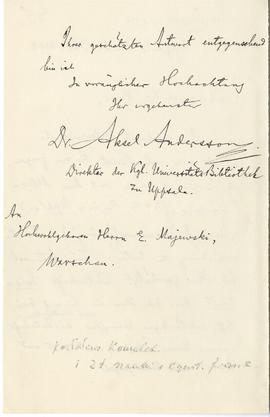 Ihrer geschätzten Antwort entgegensehend
bin ich
In vorzüglicher Hochachtung
Ihr ergebenster
Dr. Aksel Andersson.
Direktor der Kgl. Universitäts Bibliothek
zu Uppsala.
An
Hochwohlgeboren Herrn E. Majewski,
Warschau.